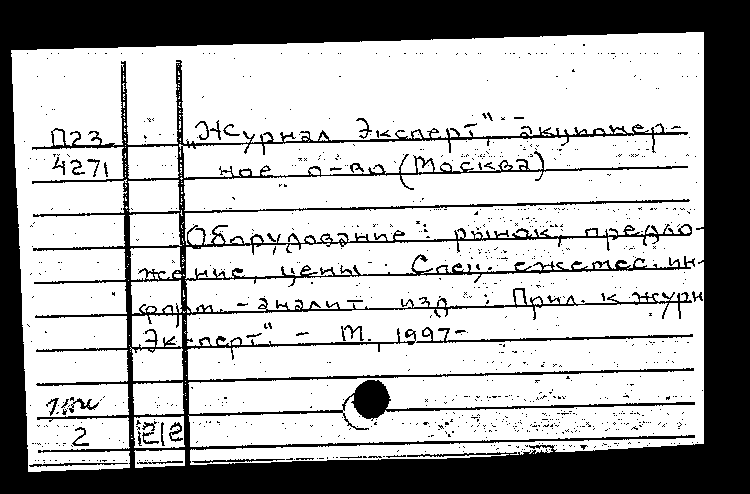 П23
4271
„Журнал Эксперт", акционер-
ное о-во (Москва)
Оборудование : рынок, предло-
жение, цены : Спец. ежемес. ин-
форм. - аналит. изд. : Прил. к журн
„Эксперт". - М., 1997-
2